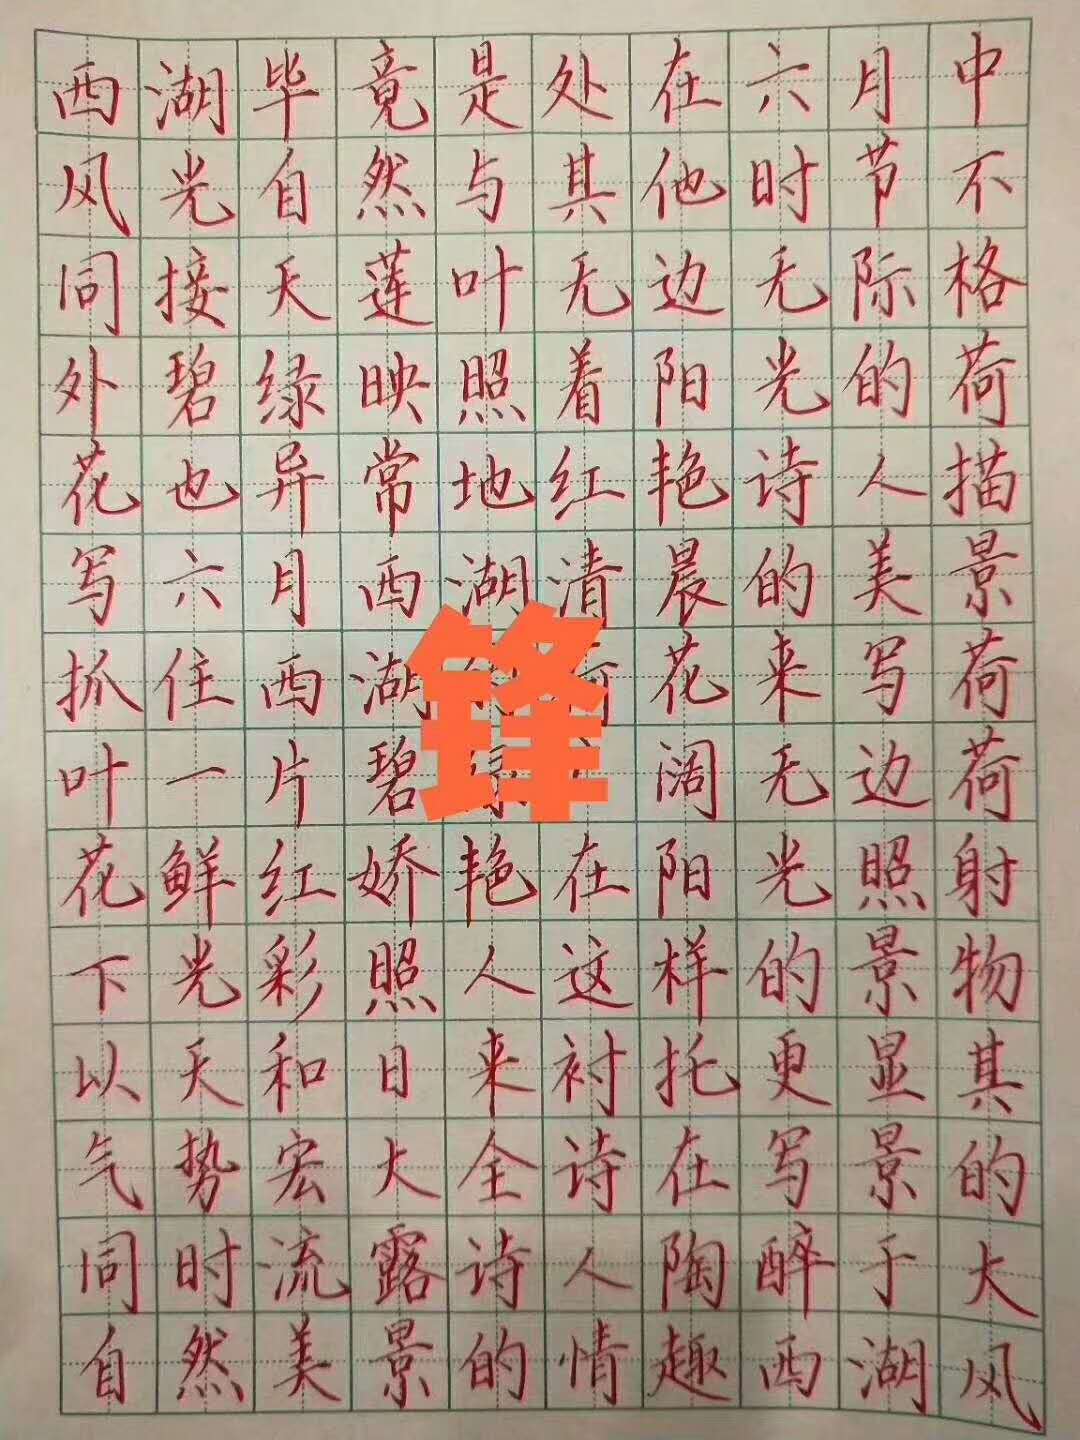 西湖毕竟是处在六月中
风光自然与其他时节不
同接天莲叶无边无际格
外碧绿映照着阳光的荷
花也异常地红艳诗人描
写六月西湖清晨的美景
抓住西湖荷花来写荷
叶一片碧绿阔无边荷
花鲜红娇艳在阳光照射
下光彩照人这样的景物
以天和日来衬托更显其
气势宏大全诗在写景的
同时流露诗人陶醉于大
自然美景的情趣西湖风
锋